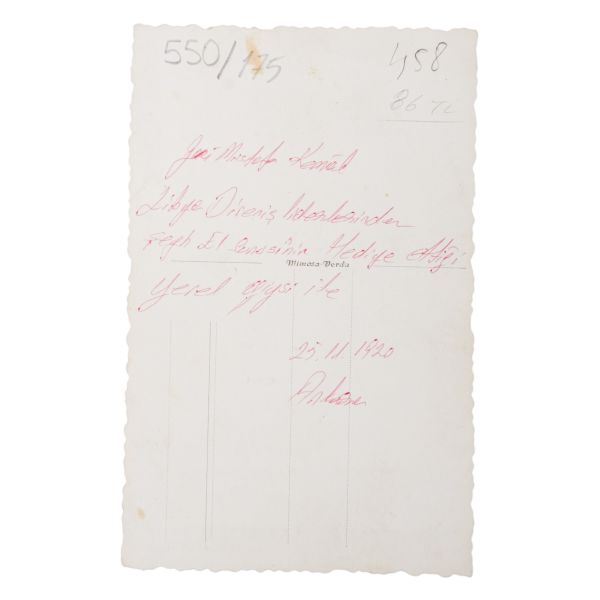 550/175
458
86 TL
Gazi Mustafa Kemal
Libya Direniş liderlerinden
Şeyh El Senusi'nin Hediye ettiği
Mimosa-Verda
Yerel giysi ile
25.11.1920
Ankara